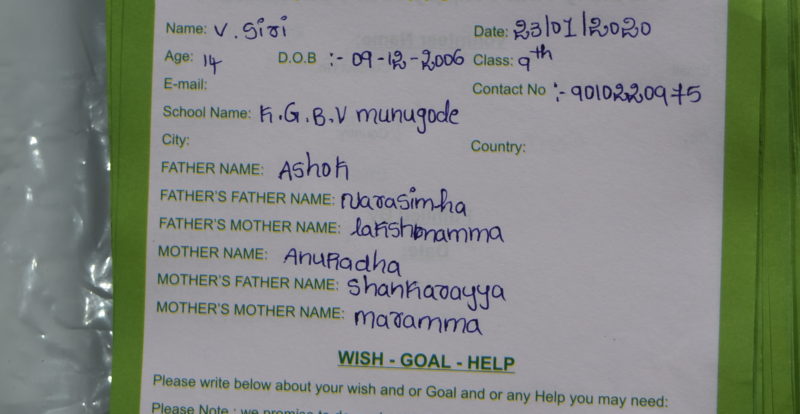 Name: V. Siri Date: 23/01/2020
Age: 14 D.O.B :- 09-12-2006 Class: 9th
E-mail: Contact No :- 9010220975
School Name: K.G.B.V munugode
City: Country:
FATHER NAME: Ashok
FATHER'S FATHER NAME: Narasimha
FATHER'S MOTHER NAME: lakshmamma
MOTHER NAME: Anuradha
MOTHER'S FATHER NAME: Shankarayya
MOTHER'S MOTHER NAME: maramma
WISH - GOAL - HELP
Please write below about your wish and or Goal and or any Help you may need:
Please Note : we promise to